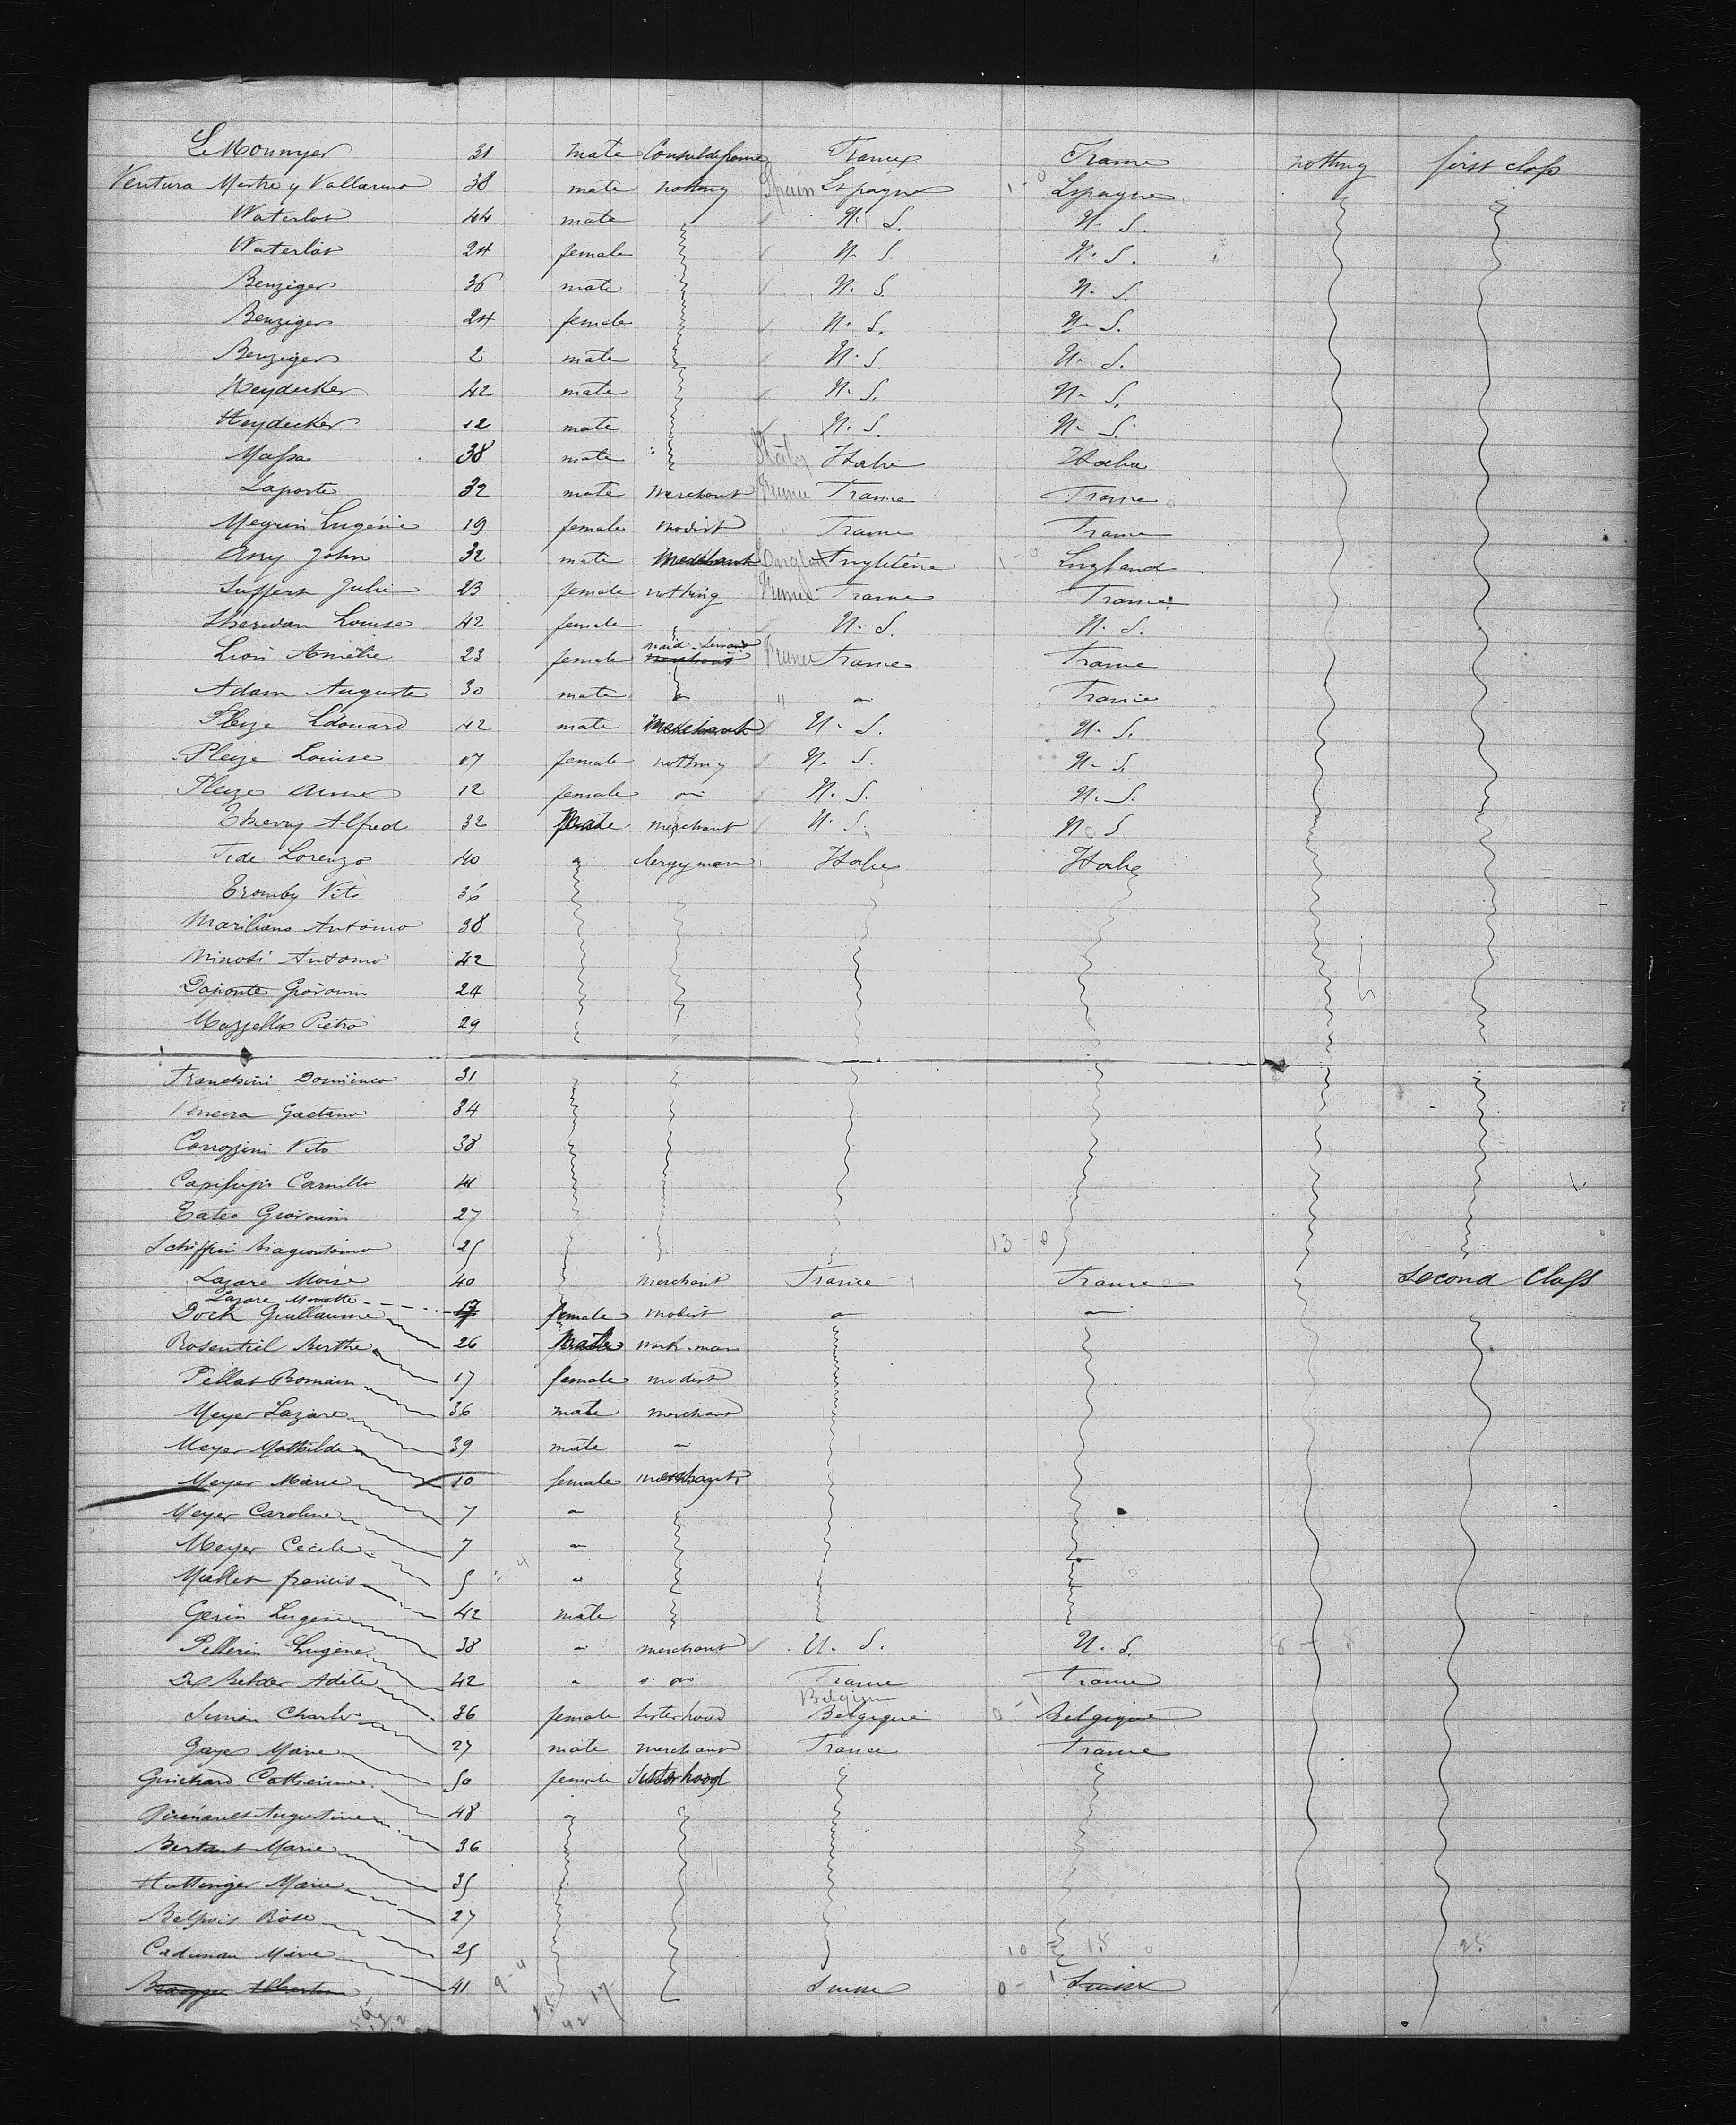 LeMonnyer 31 male Consul de france France France nothing first class
Ventura Mestre y Vallarino 38 male nothing Spain Espagne 1-0 Espagne
Waterlot 44 male U. S. U. S.
Waterlot 24 female U. S. U. S.
Benziger 36 male U. S. U. S.
Benziger 24 female U. S. U. S.
Benziger 2 male U. S. U. S.
Heydecker 42 male U. S. U. S.
Heydecker 12 male U. S. U. S.
Massa 38 male Italy Italie Italie
Laporte 32 male merchant France France France
Meyrin Eugénie 19 female modist " France France
Arry John 32 male merchant England Angleterre 1-0 England
Suffern Julie 23 female nothing France France France
Sherwan Louise 42 female U. S. U. S.
Lion Amélie 23 female maid Servant France France France
Adam Auguste 30 male " France
Pleyze Edouard 42 male merchant U. S. U. S.
Pleyze Louise 17 female nothing U. S. U. S.
Pleyze Anna 12 female U. S. U. S.
Thierry Alfred 32 male merchant U. S. U. S.
Fide Lorenzo 40 clergyman Italie Italie
Tromby Vito 36
Mariliano Antonio 38
Minoti Antonio 42
Daponte Giovanni 24
Mazzella Pietro 29
Franchini Domenico 31
Gaetano 34
Carrozzini Vito 38
Camillo 41
Tateo Giovanni 27
Schiffini 25 13-0
Lazare Moise 40 merchant France France Second Class
Lazare
Dock Guillaume 17 female modist
Rosentiel Berthe 26 male workman
Pellat Romain 17 female modist
Meyer Lazare 36 male merchant
Meyer Mathilde 39 male
Meyer Marie 10 female
Meyer Caroline 7
Meyer Cecile 7
Mallet francis 5 2-4
Gerin Eugenie 42 male
Pellerin Eugène 38 merchant U. S. U. S.
De Belder Adele 42 France France
Simon Charles 36 female Sisterhood Belgium Belgique 0-1 Belgique
Gaye Marie 27 male merchant France France
Guichard Catherine 50 female Sisterhood
Augustine 48
Bertaut Marie 36
Hottinger Marie 35
Belpois Rose 27
Marie 25 10 15 25
Albertine 41 9-4 Suisse 0-1 Suisse
25 17
42